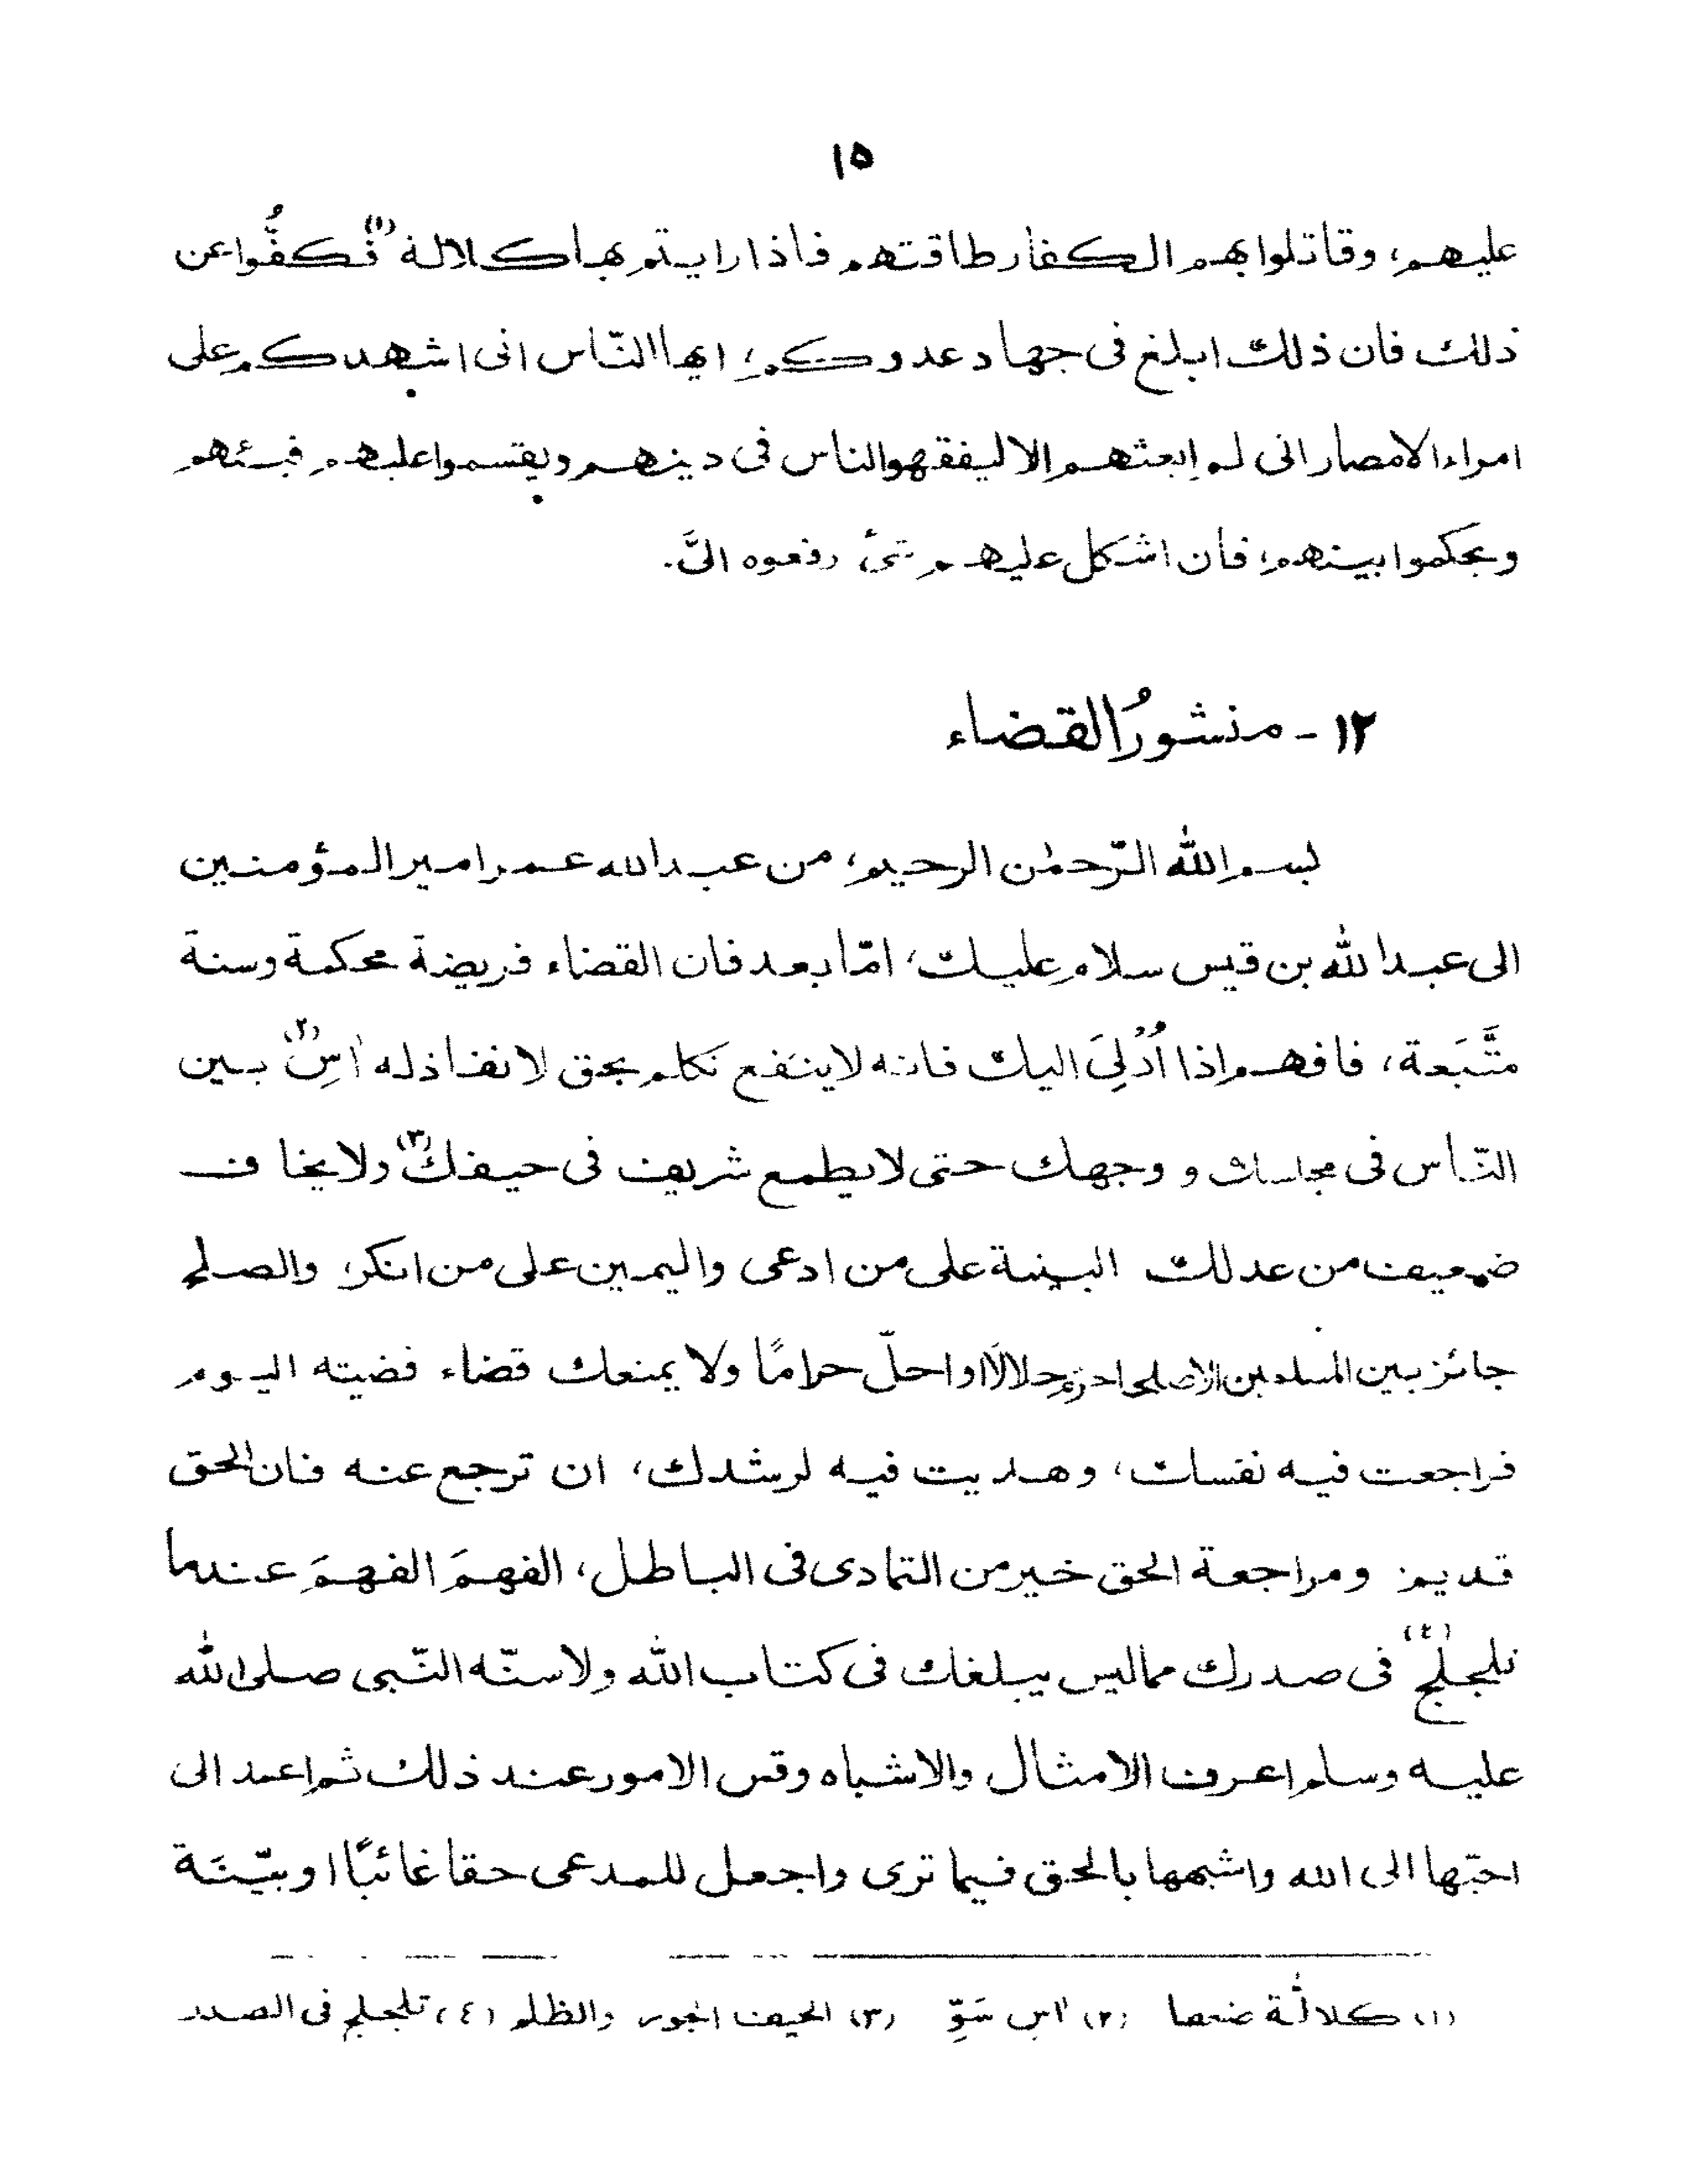 ١٥
عليهم، وقاتلوا بهم الكفار طاقتهم فاذا رايتم بها كلالة (١) فكفُّوا عن
ذلك فان ذلك ابلغ فى جهاد عدوكم، ايها النّاس انى اشهدكم على
امراء الامصار انى لم ابعثهم الا ليفقهوا الناس فى دينهم ويقسموا عليهم فيئهم
ويحكموا بينهم، فان اشكل عليهم شئ رفعوه الىَّ.
١٢ - منشورُ القضاء
بسم الله الرّحمٰن الرحيم، من عبد الله عمر امير المؤمنين
الى عبد الله بن قيس سلام عليك، امّا بعد فان القضاء فريضة محكمة وسنة
متَّبَعة، فافهم اذا اُدْلِىَ اليك فانه لاينتَفع تكلم بحق لا نفاذ له اٰسِ (٢) بين
النّاس فى مجلسك و وجهك حتى لا يطمع شريف فى حيفك (٣) ولا يخاف
ضعيف من عدلك البينة على من ادعى واليمين على من انكر، والصلح
جائز بين المسلمين الا صلحا احرم حلالًا او احلّ حرامًا ولا يمنعك قضاء قضيته اليوم
فراجعت فيه نفسك، وهديت فيه لرشدك، ان ترجع عنه فان الحق
قديم ومراجعة الحق خير من التمادى فى الباطل، الفهمَ الفهمَ عندما
تلجلج (٤) فى صدرك مماليس يبلغك فى كتاب الله ولا سنّه النّبى صلى الله
عليه وسلم اعرف الامثال والاشباه وقس الامور عند ذلك ثم اعمد الى
احبّها الى الله واشبهها بالحق فيما ترى واجعل للمدعى حقا غائبًا او بيّنَة
(١) كلالة ضعفا (٢) اٰس سَوِّ (٣) الحيف الجور والظلم (٤) تلجلج فى الصدر